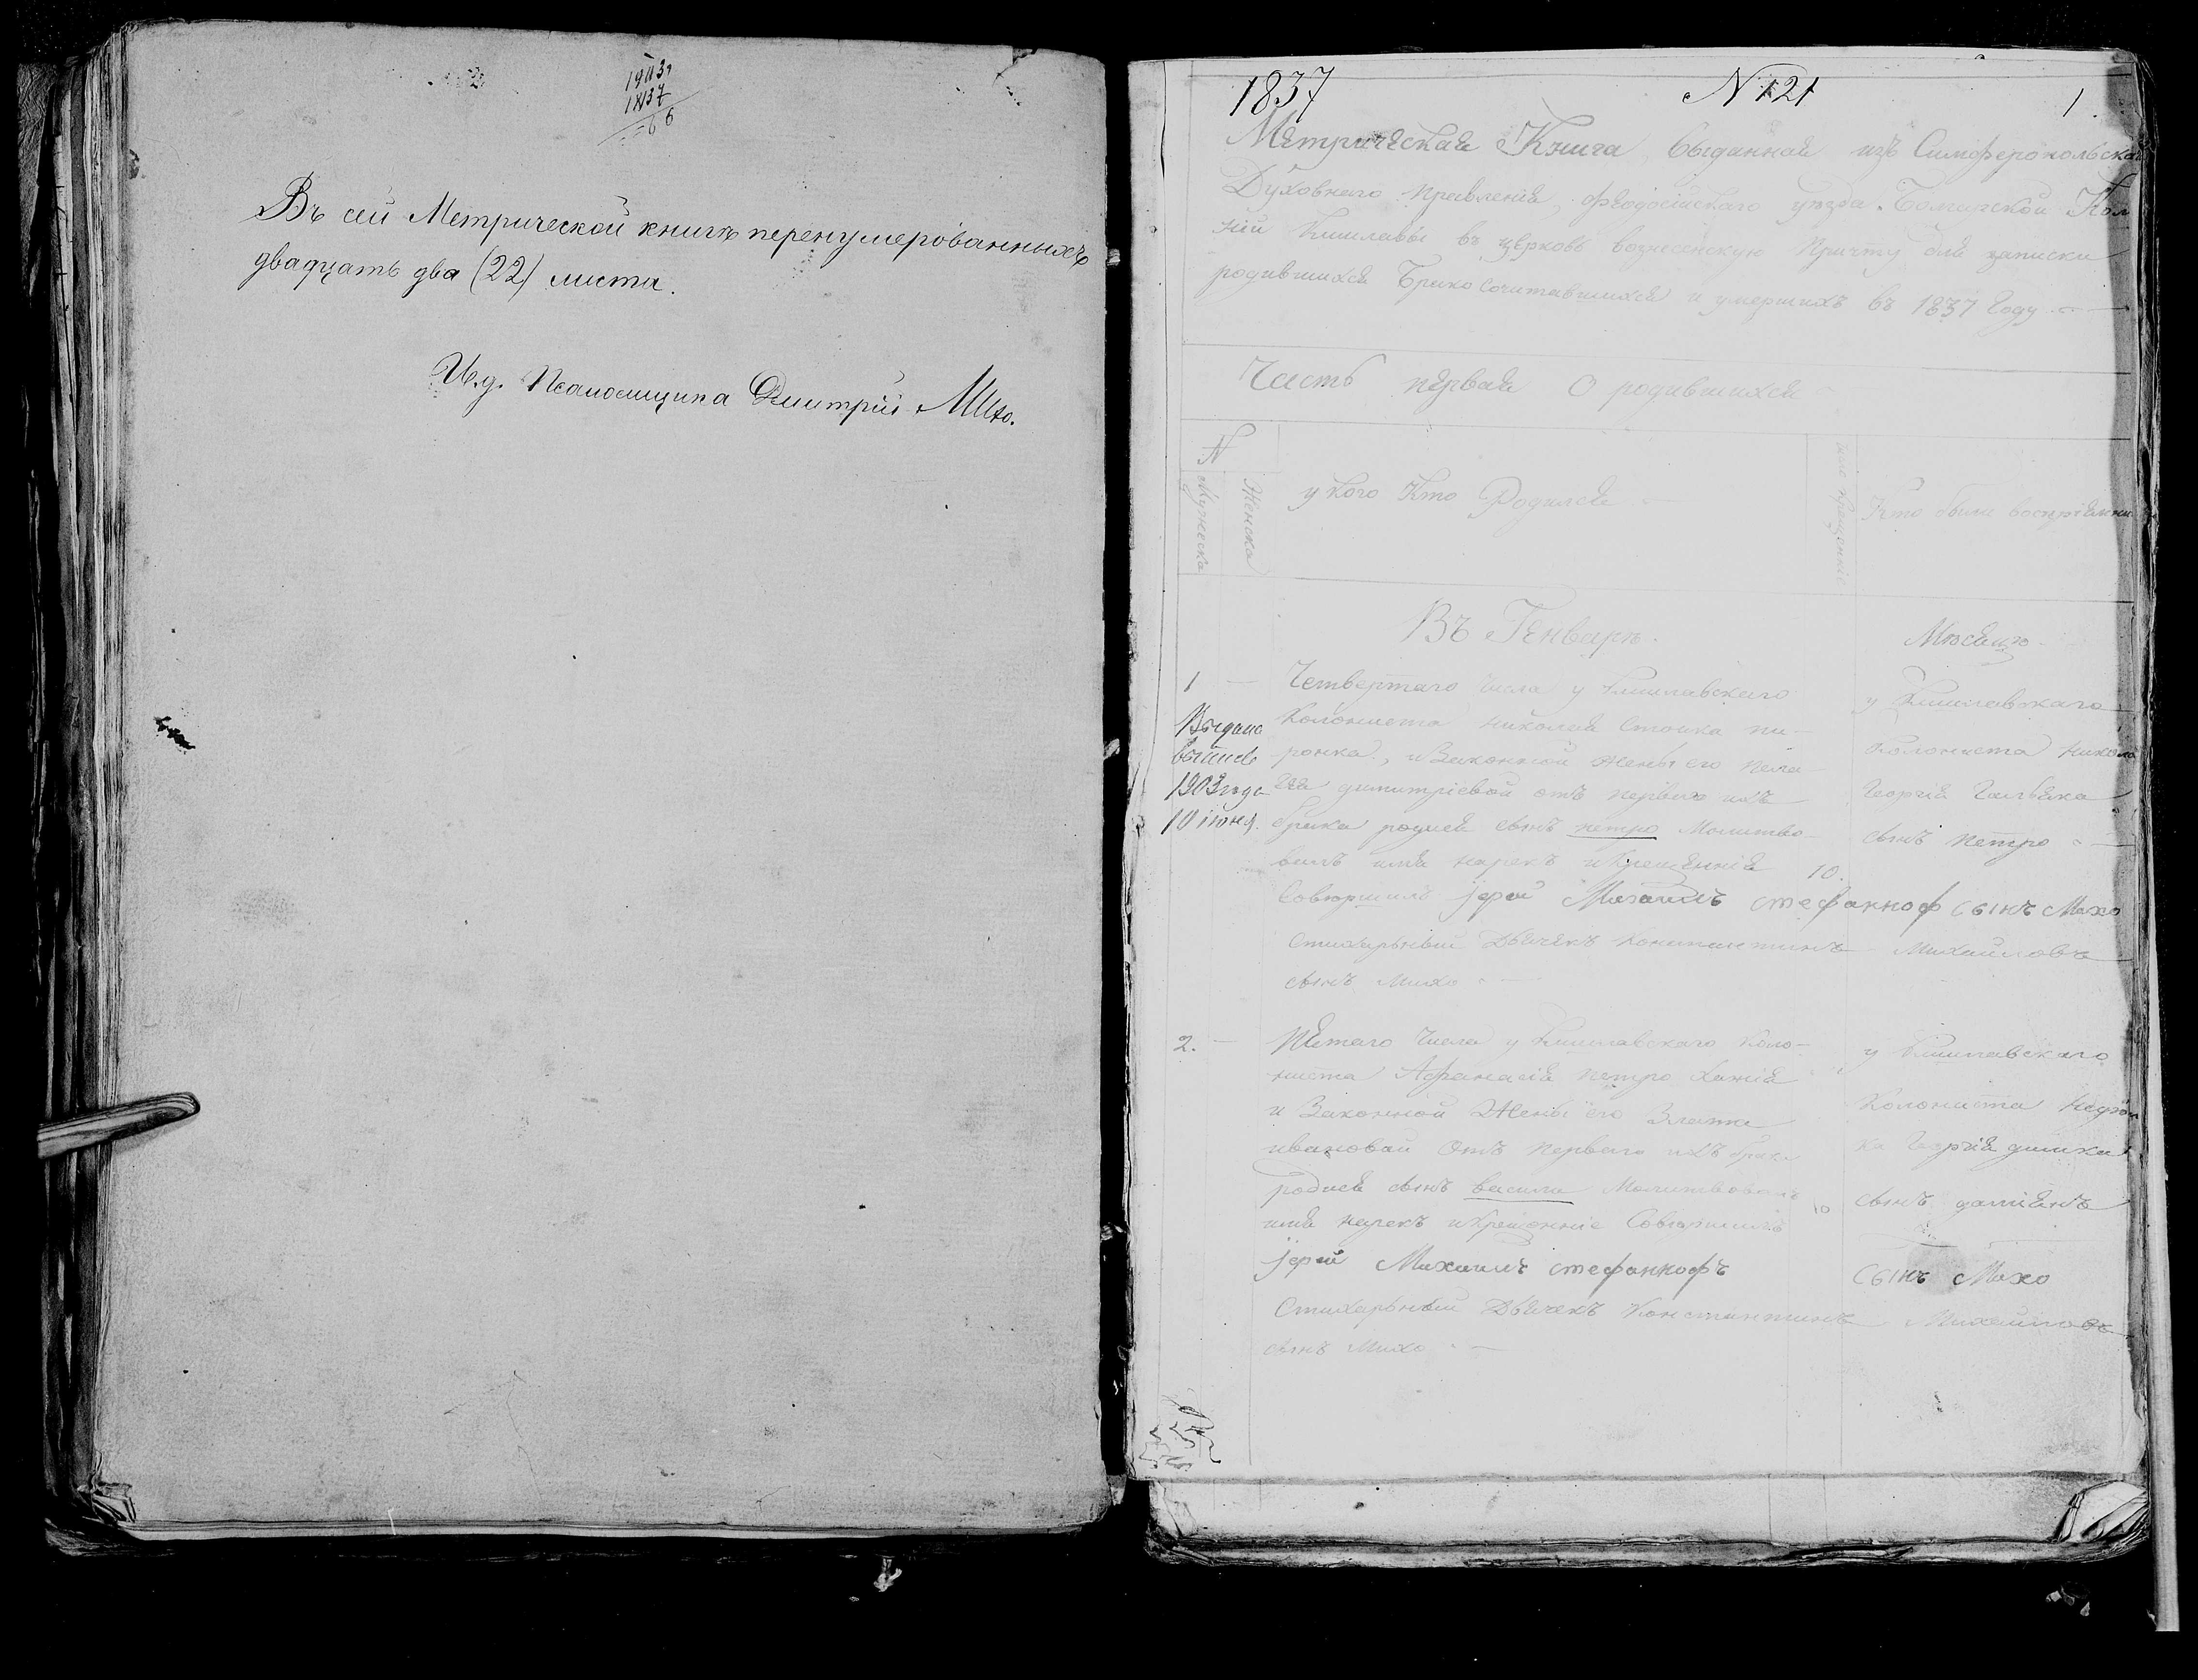 1903
1837
66
Въ сей Метрической книгѣ перенумерованныхъ
двадцать два (22) листа.
И.д. Псаломщика Дмитрій Михо.
1837 N 121 1.
Метрическая Книга выданная изъ Симферопольска
Духовнаго правленія, феодосійскаго уѣзда Болгарской Кол
ніи Кишлавы въ церковь вознесенскую Причту для записки
родившихся Брако сочитавшихся и умершихъ въ 1837 Году
Часть первая О родившихся
N
Мужеска
Женска
у кого Кто Родился
число крещенія
Кто были воспріемни
Въ Генварѣ. Мѣсяцѣ
1 Четвертаго числа у Кишлавскаго
колониста николая Стоика пи-
ронка, и Законной жены его пела
геи димитріевой отъ перваго ихъ
брака родися сынъ петро Молитво
валъ имя нарекъ и крещеніе 10.
Совершилъ іерей Михаилъ стефанноф сынъ Михо
Стихарный Дьячекъ Константинъ Михайловъ
сынъ Михо
Выдана
выпись
1903 года
10 іюня.
у Кишлавскаго
колониста никола
Георгія
сынъ петро
2. Пятаго числа у Кишлавскаго коло-
ниста Афанасія петро
и Законной Жены его Злата
ивановой отъ перваго ихъ брака
родися сынъ василь Молитвовалъ
имя нарекъ и крещеніе Совершилъ 10
іерей Михаилъ стефаннофъ
Стихарный Дьячекъ Константинъ Михайловъ
сынъ Михо
у Кишлавскаго
Колониста
Георгія димка
сынъ даміянъ
сынъ Михо